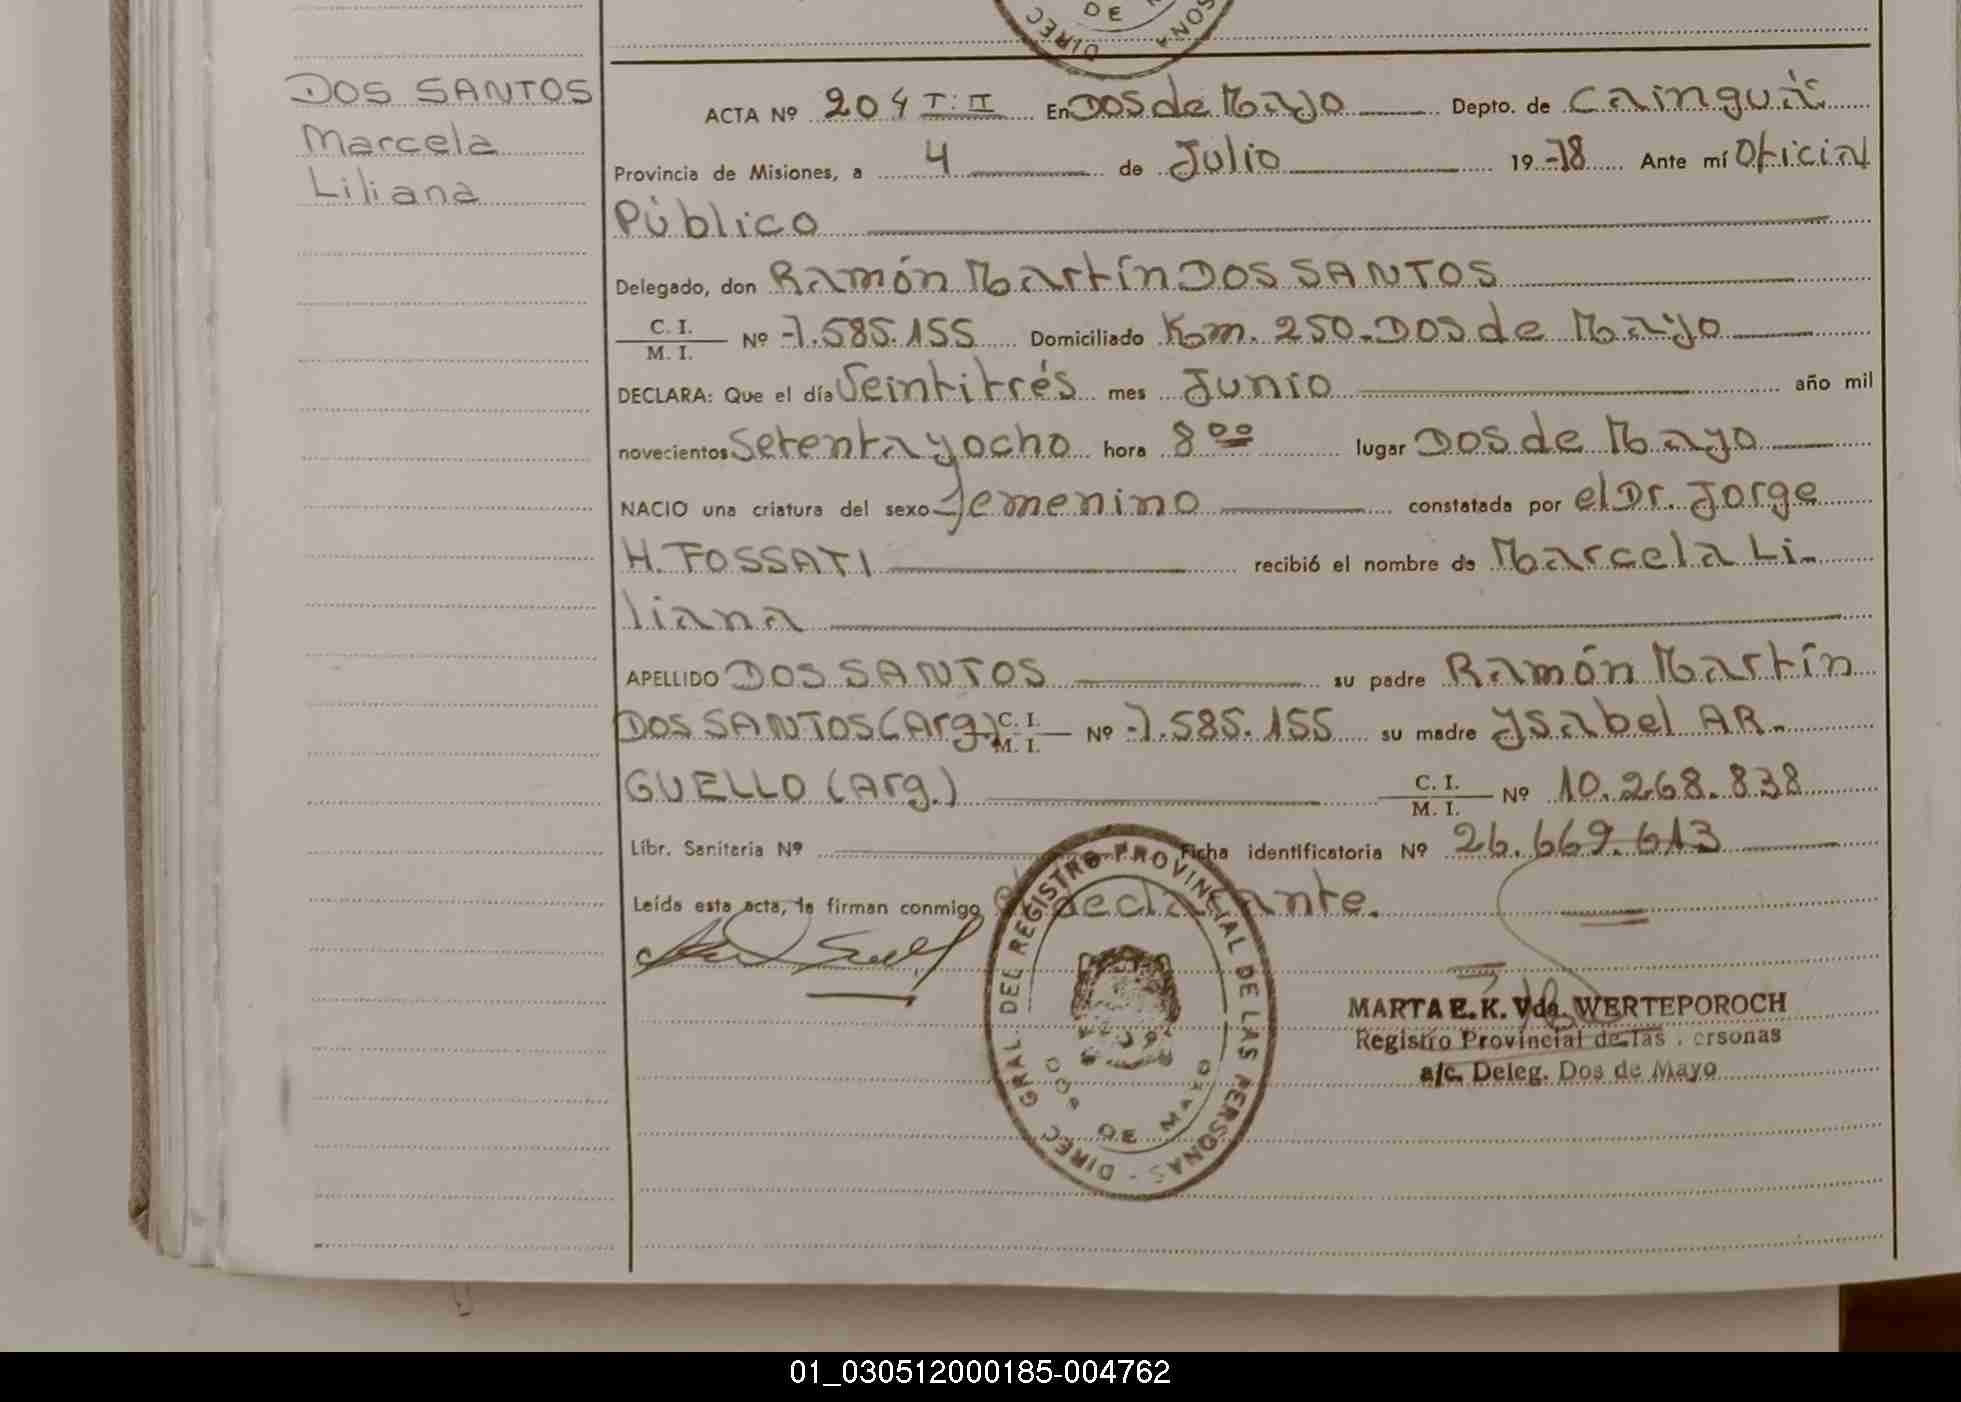 DE
DIREC
SONA
DOS SANTOS
Marcela
Liliana
ACTA Nº 204 T: II En Dos de Mayo Depto. de Cainguás
Provincia de Misiones, a 4 de Julio 19 78 Ante mí Oficial
Público
Delegado, don Ramón Martín DOS SANTOS
C. I. / M. I. Nº 7.585.155 Domiciliado Km. 250. Dos de Mayo
DECLARA: Que el día Veintitrés mes Junio año mil
novecientos Setenta y ocho hora 8 00 lugar Dos de Mayo
NACIO una criatura del sexo femenino constatada por el Dr. Jorge
H. FOSSATI recibió el nombre de Marcela Li-
liana
APELLIDO DOS SANTOS su padre Ramón Martín
DOS SANTOS (Arg.) C. I. / M. I. Nº 7.585.155 su madre Ysabel AR-
GUELLO (Arg.) C. I. / M. I. Nº 10.268.838
Libr. Sanitaria Nº Ficha identificatoria Nº 26.669.613
Leída esta acta, la firman conmigo el declarante.
DIREC. GRAL. DEL REGISTRO PROVINCIAL DE LAS PERSONAS -
DOS DE MAYO
MARTA E. K. Vda. WERTEPOROCH
Registro Provincial de las ersonas
a/c. Deleg. Dos de Mayo
01_030512000185-004762